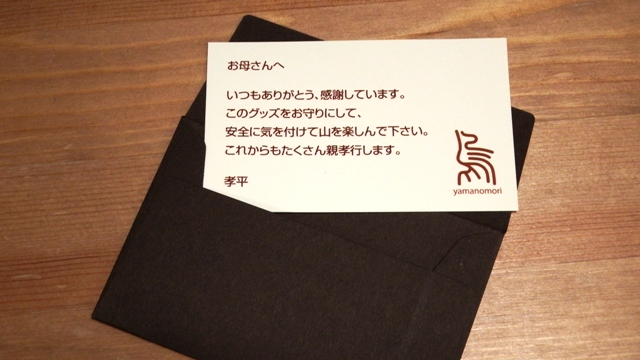 お母さんへ
いつもありがとう、感謝しています。
このグッズをお守りにして、
安全に気を付けて山を楽しんで下さい。
これからもたくさん親孝行します。
孝平
yamanomori